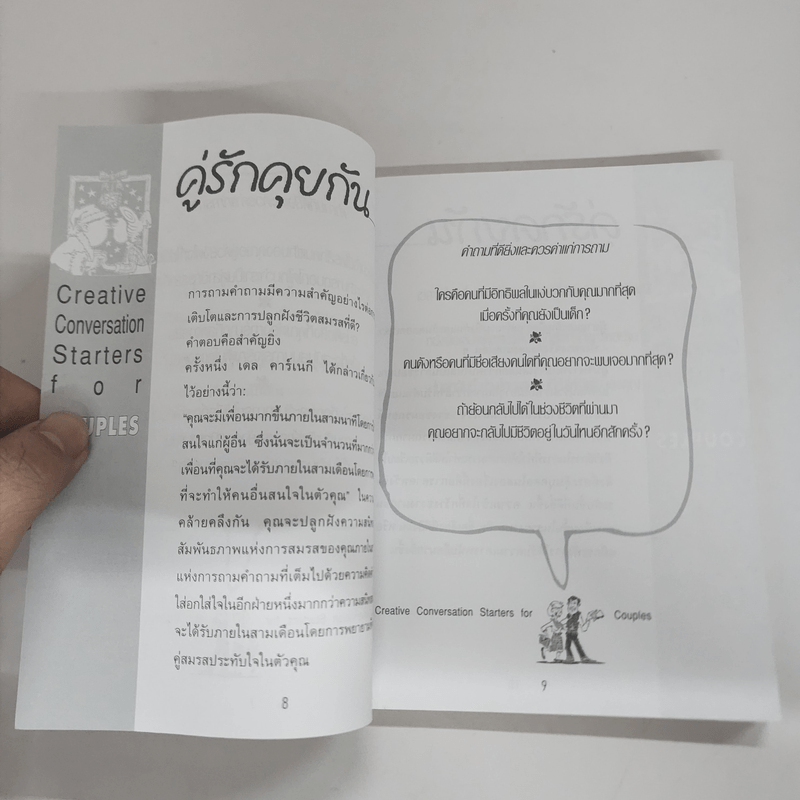 คู่รักคุยกัน
Creative
Conversation
Starters
for
UPLES
การถามคำถามมีความสำคัญอย่างไรต่อ
เติบโตและการปลูกฝังชีวิตสมรสที่ดี?
คำตอบคือสำคัญยิ่ง
ครั้งหนึ่ง เดล คาร์เนกี ได้กล่าวเกี่ยว
ไว้อย่างนี้ว่า:
"คุณจะมีเพื่อนมากขึ้นภายในสามนาทีโดย
สนใจแก่ผู้อื่น ซึ่งนั่นจะเป็นจำนวนที่มาก
เพื่อนที่คุณจะได้รับภายในสามเดือนโดย
ที่จะทำให้คนอื่นสนใจในตัวคุณ" ใน
คล้ายคลึงกัน คุณจะปลูกฝังความ
สัมพันธภาพแห่งการสมรสของคุณภายใน
แห่งการถามคำถามที่เต็มไปด้วยความ
ใส่อกใส่ใจในอีกฝ่ายหนึ่งมากกว่าความ
จะได้รับภายในสามเดือนโดยการพยายาม
คู่สมรสประทับใจในตัวคุณ
8
คำถามที่ดียิ่งและควรค่าแก่การถาม
ใครคือคนที่มีอิทธิพลในแง่บวกกับคุณมากที่สุด
เมื่อครั้งที่คุณยังเป็นเด็ก?
คนดังหรือคนที่มีชื่อเสียงคนใดที่คุณอยากจะพบเจอมากที่สุด?
ถ้าย้อนกลับไปได้ในช่วงชีวิตที่ผ่านมา
คุณอยากจะกลับไปมีชีวิตอยู่ในวันไหนอีกสักครั้ง?
Creative Conversation Starters for Couples
9